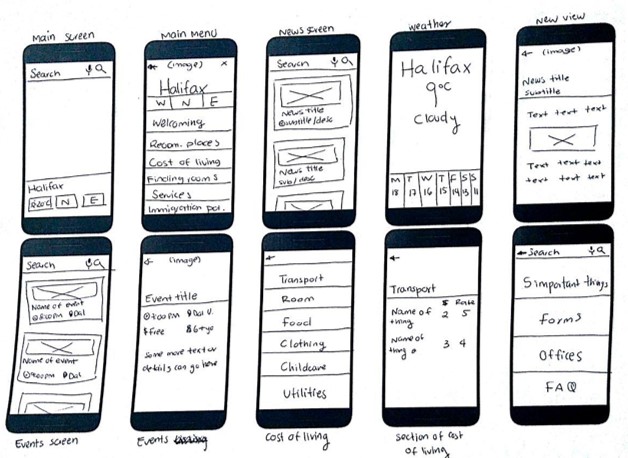 Main screen
Search
Halifax
N E
Main Menu
(image) x
Halifax
W N E
Welcoming
Recom. places
Cost of living
Finding rooms
Services
Immigration pol.
News screen
Search
News title
subtitle/desc
News title
sub/desc
weather
Halifax
9°C
cloudy
M T W T F S S
18 17 16 15 14 13 11
New view
(image)
News title
subtitle
Text text text
Text text text
text text text
Search
Name of event
8:00PM Dal
Name of event
Dal
Events screen
(image)
Event title
Dal U.
Free
Some more text or
details can go here
Events
Transport
Room
Food
Clothing
Childcare
Utilities
Cost of living
Transport
$ Rate
Name of 2 5
thing
Name of 3 4
thing
section of cost
of living
Search
5 important things
Forms
Offices
FAQ